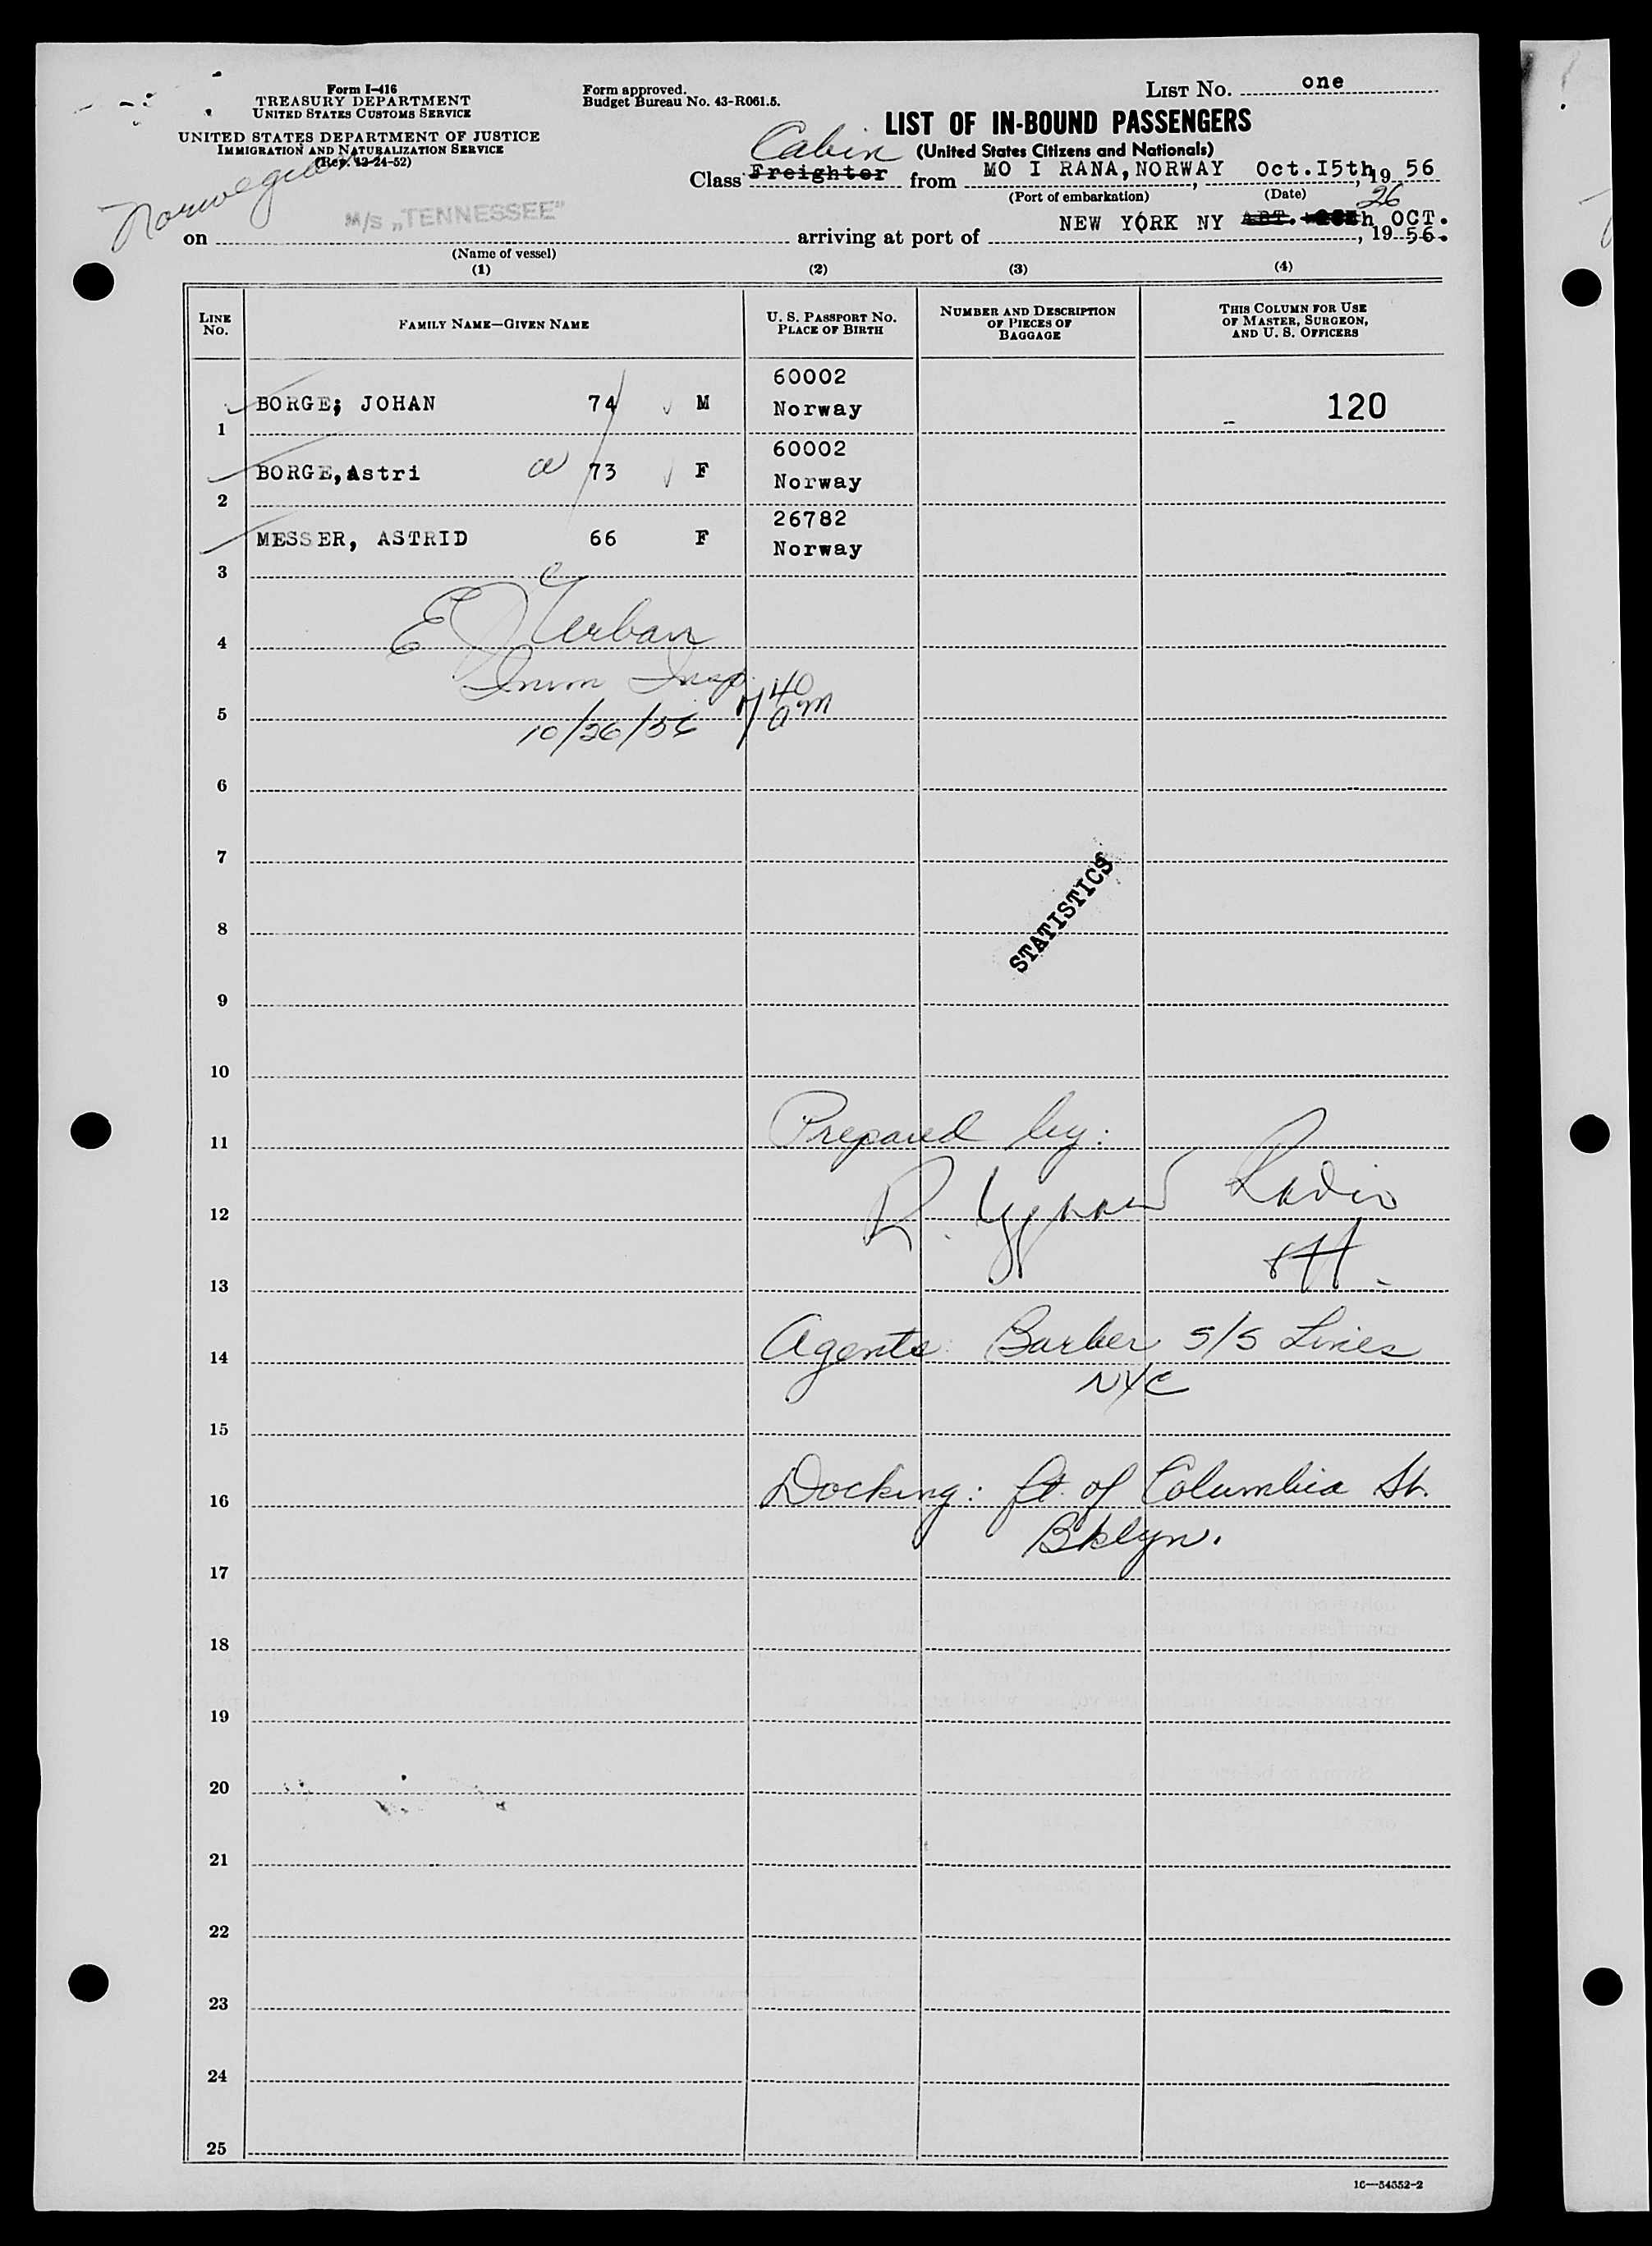 Form I-416
TREASURY DEPARTMENT
UNITED STATES CUSTOMS SERVICE
UNITED STATES DEPARTMENT OF JUSTICE
IMMIGRATION AND NATURALIZATION SERVICE
(Rev. 12-24-52)
Norwegian
Form approved.
Budget Bureau No. 43-R061.5.
LIST No. one
LIST OF IN-BOUND PASSENGERS
(United States Citizens and Nationals)
Cabin
Class Freighter from MO I RANA, NORWAY, Oct. I5th, 19 56
(Port of embarkation) (Date)
26
on M/S „TENNESSEE" arriving at port of NEW YORK NY h OCT., 19 56.
(Name of vessel)
(1) (2) (3) (4)
LINE No.
FAMILY NAME—GIVEN NAME
U. S. PASSPORT No. PLACE OF BIRTH
NUMBER AND DESCRIPTION OF PIECES OF BAGGAGE
THIS COLUMN FOR USE OF MASTER, SURGEON, AND U. S. OFFICERS
1 BORGE; JOHAN 74 M 60002 Norway 120
2 BORGE, Astri 73 F 60002 Norway
3 MESSER, ASTRID 66 F 26782 Norway
4 Urban
Imm Insp. 7 40 am
5
10/26/56
6
7
STATISTICS
8
9
10
11 Prepared by:
12 R. Radio
13
14 Agents: Barber S/S Lines
NYC
15
16 Docking: ft. of Columbia St.
Bklyn.
17
18
19
20
21
22
23
24
25
16—54552-2